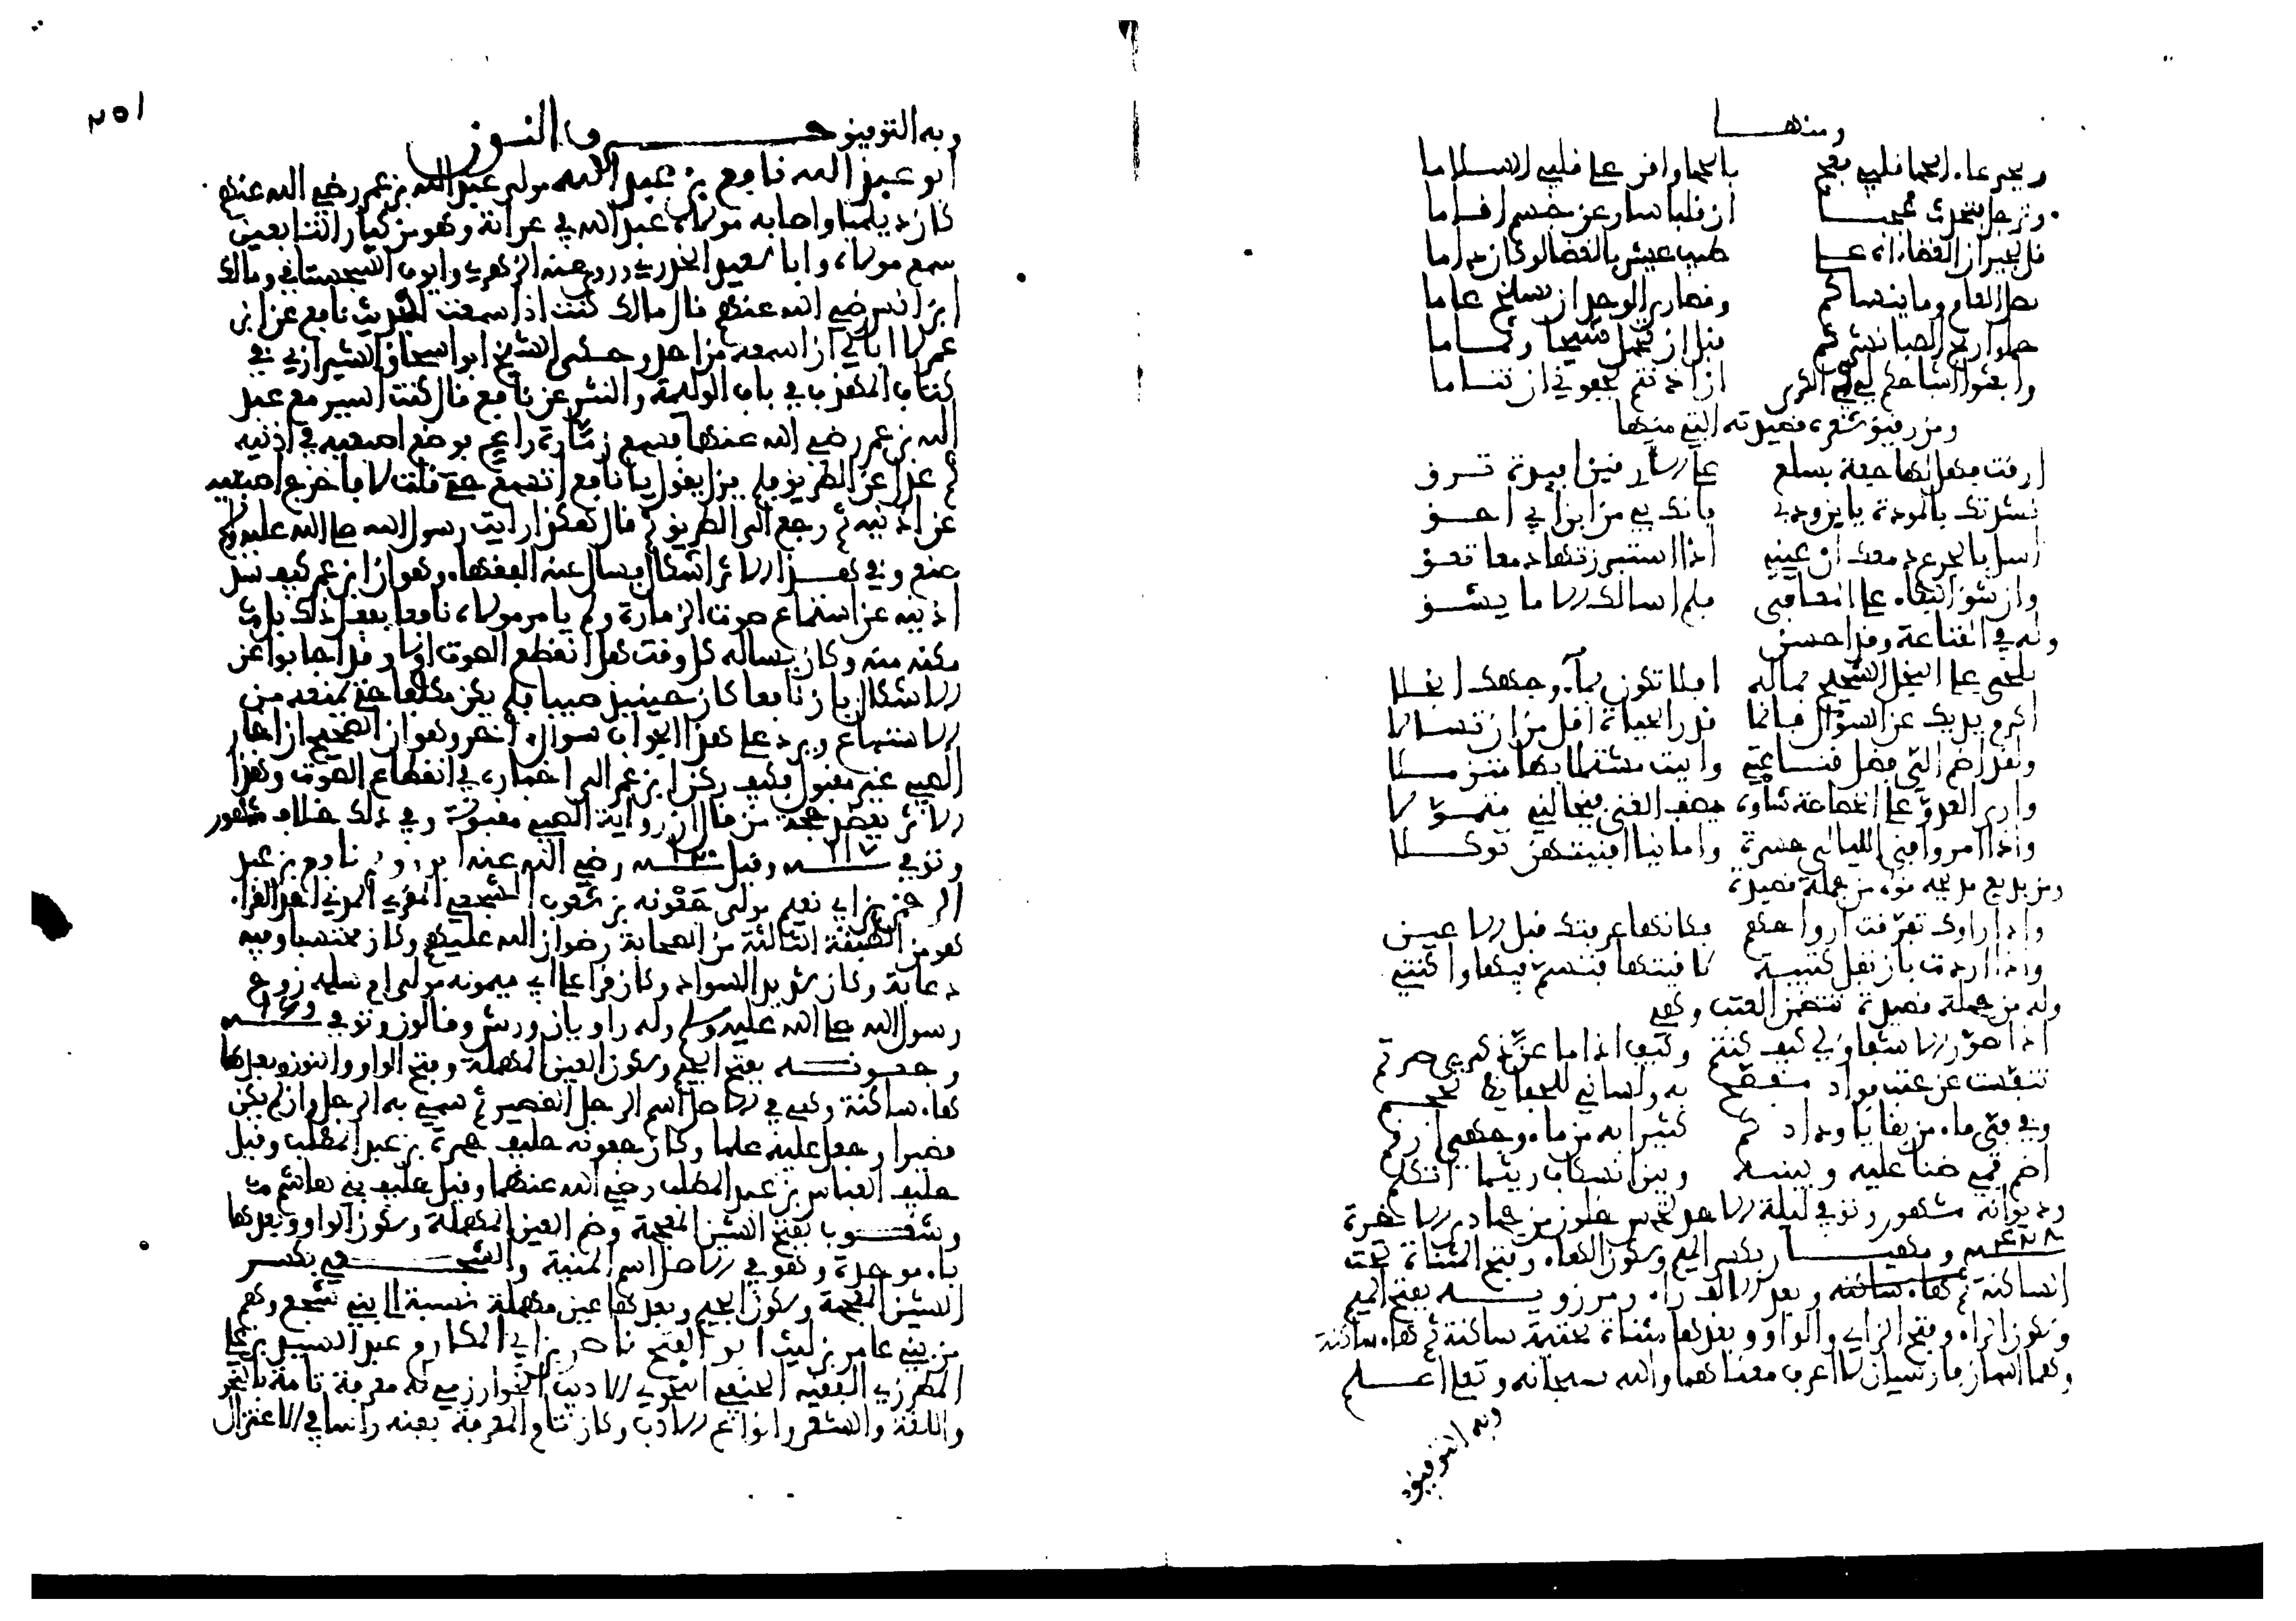 ومنها
وبجرعاء الحما قلبي فعج بالحما واقر على قلبي السلاما
وترجل فتحدث عجبا ان قلبا سار عن جسم اقاما
قل لجيران الغضا اه على طيب عيش بالغضا لو كان داما
نصل العام وما ننساكم وقصارى الوجد ان نسلخ عاما
حملوا ريح الصبا نشركم قبل ان تحمل شيحا وثماما
وابعثوا اشباحكم لي في الكرى ان اذنتم لجفوني ان تناما
ومن رقيق شعره قصيدته التي منها
ارقت فهل لهاجعة بسلع على الارقين افيدة ترق
نشدتك بالمودة يا بن ودي فانك بي من ابن ابي احق
اسل بالجزع دمعك ان عيني اذا استبرزتها دمعا تعق
وان شق البكاء على المعافى فلم اسالك الا ما يشق
وله في القناعة وقد احسن
يلحى على البخل الشحيح بماله افلا تكون بماء وجهك ابخلا
اكرم يديك عن السؤال فانما قدر الحياة اقل من ان تسالا
ولقد اضم الي فضل قناعتي وابيت مشتملا بها متزملا
وارى العدو على الخصاصة شارة تصف الغنى فيخالني متمولا
واذا امرؤ افنى الليالي حسرة وامانيا افنيتهن توكلا
ومن بديع مدايحه قوله من جملة قصيدة
واذا راوك تفرقت ارواحهم فكانما عرفتك قبل الاعين
واذا اردت بان تفل كتيبة لاقيتها فتسم فيها واكتني
وله من جملة قصيدة تتضمن العتب وهي
اذا صور الاشفاق لي كيف كنتم وكيف اذا ما عن ذكري صرتم
تنفست عن عتب فوادي مفصح به ولساني للحفاظ يجمجم
وفي في ماء من بقايا ودادكم كثيرا به من ماء وجهي ارقتم
اضم فمي ضنا عليه وبينه وبين انسكاب ريثما اتكلم
وديوانه مشهور وتوفي ليلة الاحد لخمس خلون من جمادى الاخرة
سنة ٤٢٨ ومهيار بكسر الميم وسكون الهاء وفتح المثناة تحت
الساكنة ثم هاء ساكنة وبعد الالف راء ومرزويه بفتح الميم
وسكون الراء وفتح الزاي والواو وبعدها مثناة تحتية ساكنة ثم هاء ساكنة
وهما اسمان فارسيان لا اعرف معناهما والله سبحانه وتعالى اعلم
وبه التوفيق
٢٥١
وبه التوفيق حرف النون
ابو عبد الله نافع بن عبد الله مولى عبد الله بن عمر رضي الله عنهم
كان ديلميا واصابه مولاه عبد الله في غزاته وهو من كبار التابعين
سمع مولاه وابا سعيد الخدري وروى عنه الزهري وايوب السجستاني ومالك
ابن انس رضي الله عنهم قال مالك كنت اذا سمعت الحديث نافع عن ابن
عمر لا ابالي ان اسمعه من احد وحكى الشيخ ابو اسحاق الشيرازي في
كتاب المهذب في باب الوليمة والنثر عن نافع قال كنت اسير مع عبد
الله بن عمر رضي الله عنهما فسمع زمارة راع فوضع اصبعيه في اذنيه
ثم عدل عن الطريق فلم يزل يقول يا نافع اتسمع حتى قلت لا فاخرج اصبعيه
عن اذنيه ثم رجع الى الطريق ثم قال هكذا رايت رسول الله صلى الله عليه وسلم
صنع وفي هذا الاثر اشكال يسال عنه الفقهاء وهو ان ابن عمر كيف سد
اذنيه عن استماع صوت الزمارة ولم يامر مولاه نافعا بفعل ذلك بل
مكنه منه وكان يساله كل وقت هل انقطع الصوت ام لا وقد اجابوا عن
الاشكال بان نافعا كان حينيذ صبيا فلم يكن مكلفا حتى يمنعه من
الاستماع ويرد على هذا الجواب سوال اخر وهو ان الصحيح ان اخبار
الصبي غير مقبول فكيف ركن ابن عمر الى اخباره في انقطاع الصوت وهذا
الاثر يعضد حجة من قال ان رواية الصبي مقبولة وفي ذلك خلاف مشهور
وتوفي سنة ١١٧ وقيل سنة ١٢٠ رضي الله عنه ابو رويم نافع بن عبد
الرحمن بن ابي نعيم مولى جعونه بن شعوب الشجعي المقري المدني احد القراء
هو من الطبقة الثالثة من الصحابة رضوان الله عليهم وكان محتسبا وفيه
دعابة وكان شديد السواد وكان قرا على ابي ميمونه مولى ام سلمه زوج
رسول الله صلى الله عليه وسلم وله راويان ورش وقالون وتوفي سنة ١٥٩
وجعونه بفتح الجيم وسكون العين المهملة وفتح الواو والنون وبعدها
هاء ساكنة وهي في الاصل اسم الرجل القصير ثم سمي به الرجل وان لم يكن
قصيرا وجعل عليه علما وكان جعونه حليف حمزة بن عبد المطلب وقيل
حليف العباس بن عبد المطلب رضي الله عنهما وقيل حليف بني هاشم
وشعوب بفتح الشين المعجمة وضم العين المهملة وسكون الواو وبعدها
باء موحدة وهو في الاصل اسم المنية والشجعي بكسر
الشين المعجمة وسكون الجيم وبعدها عين مهملة نسبة الى بني شجع وهم
من بني عامر بن ليث ابو الفتح ناصر بن ابي المكارم عبد السيد بن علي
المطرزي الفقيه الحنفي النحوي الاديب الخوارزمي له معرفة تامة بالنحو
واللغة والشعر وانواع الادب وكان تام المعرفة بفنه راسا في الاعتزال